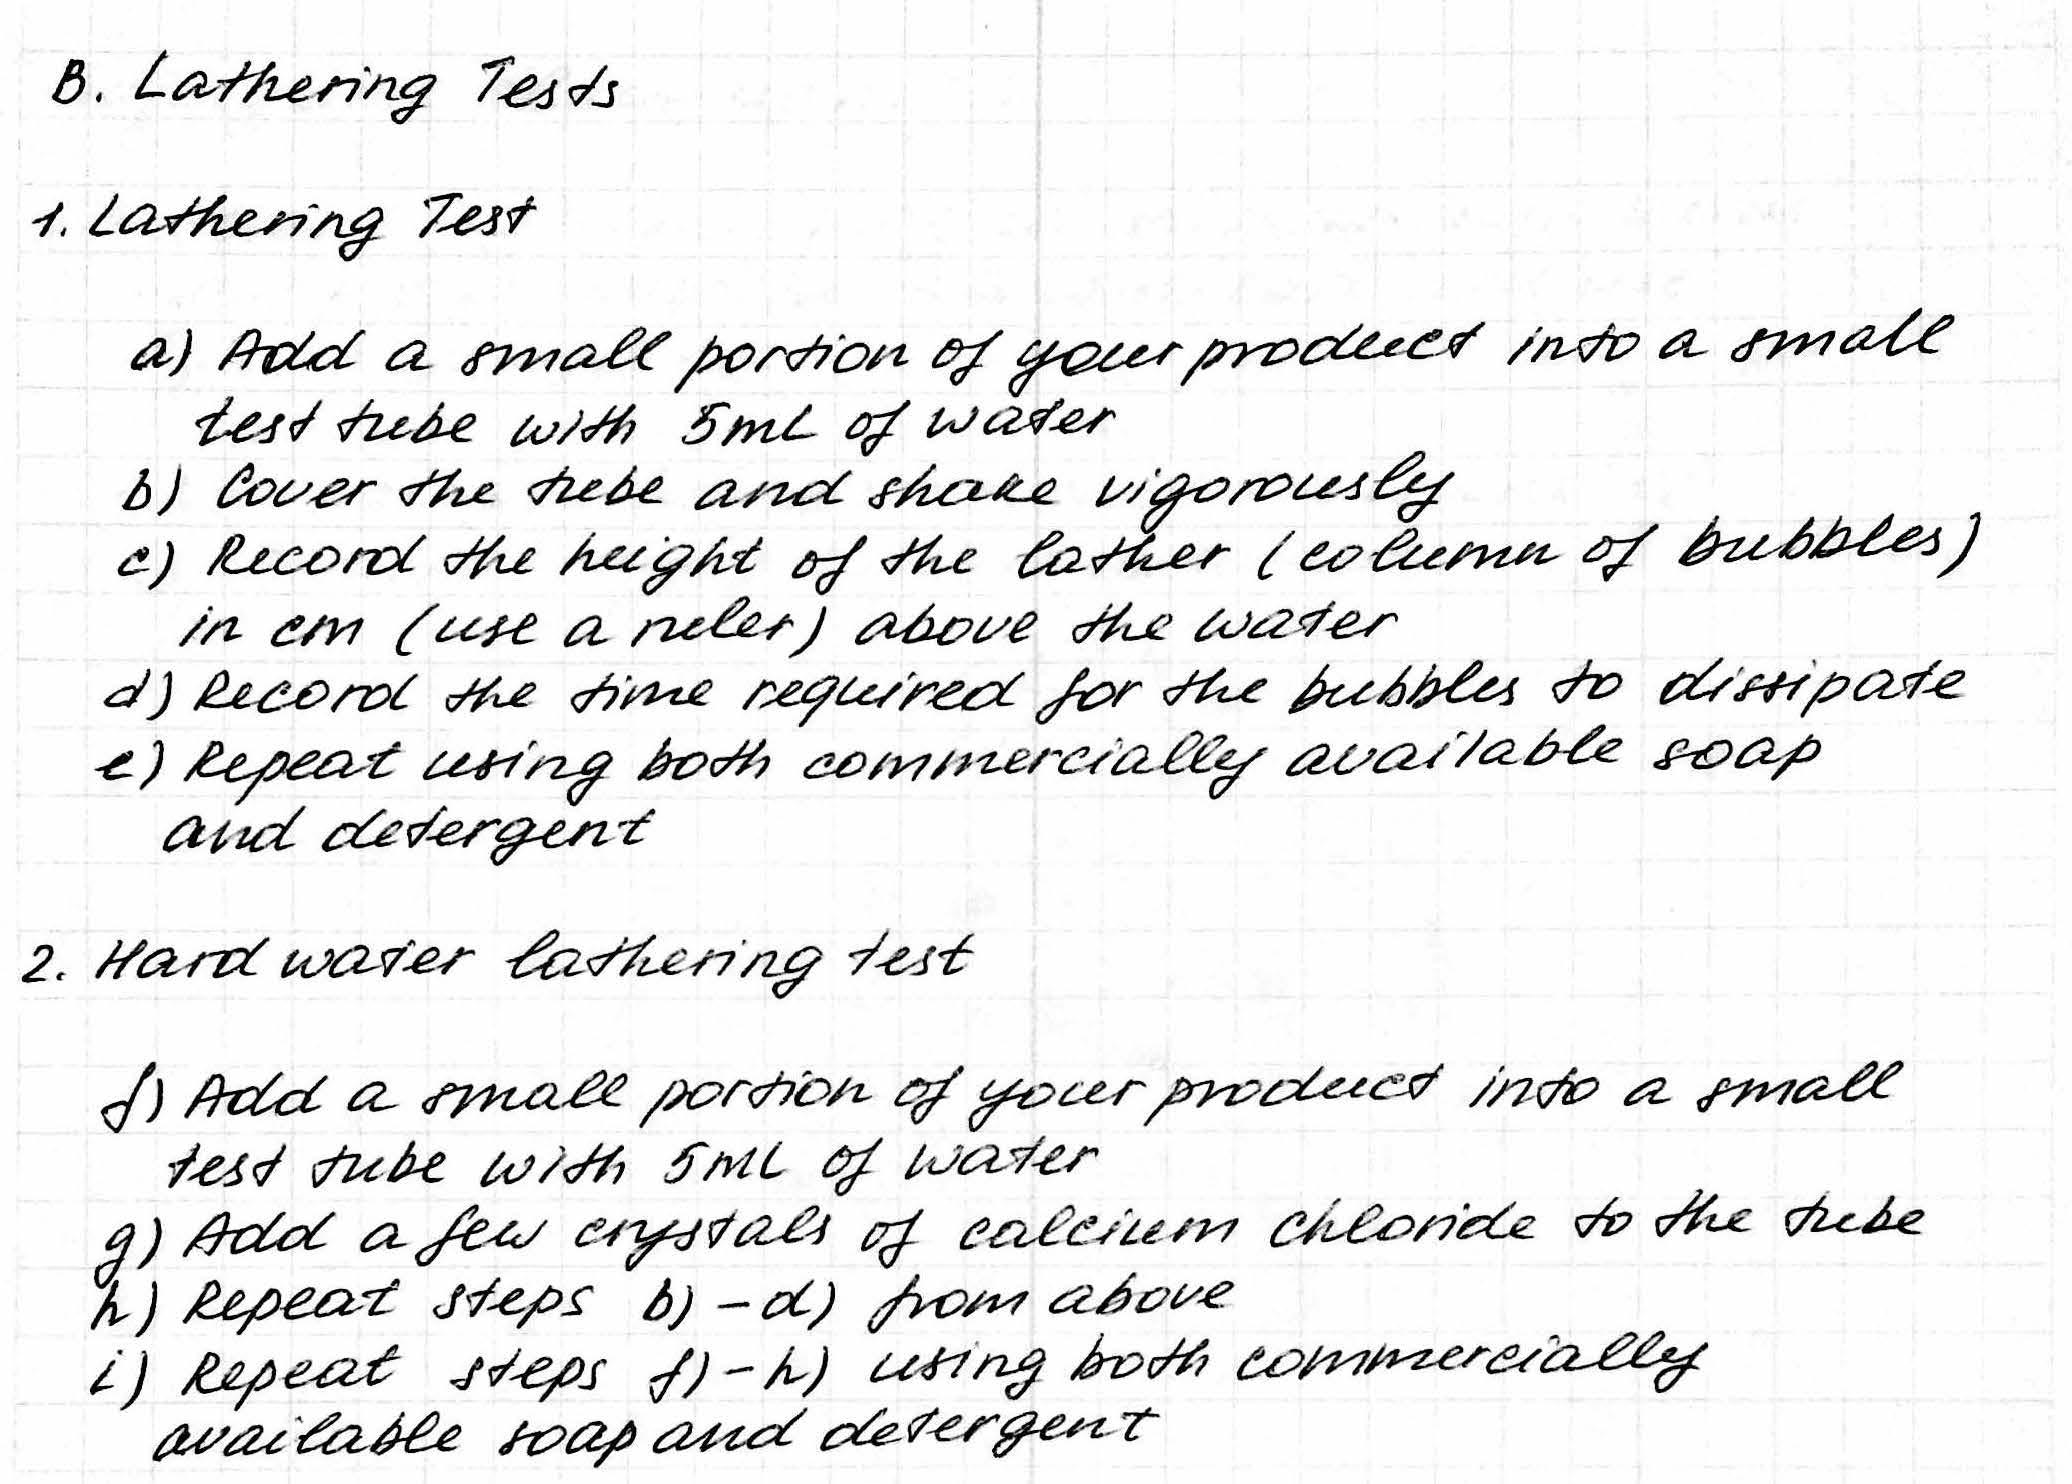 B. Lathering Tests
1. Lathering Test
a) Add a small portion of your product into a small
test tube with 5mL of water
b) Cover the tube and shake vigorously
c) Record the height of the lather (column of bubbles)
in cm (use a ruler) above the water
d) Record the time required for the bubbles to dissipate
e) Repeat using both commercially available soap
and detergent
2. Hard water lathering test
f) Add a small portion of your product into a small
test tube with 5mL of water
g) Add a few crystals of calcium chloride to the tube
h) Repeat steps b) - d) from above
i) Repeat steps f) - h) using both commercially
available soap and detergent